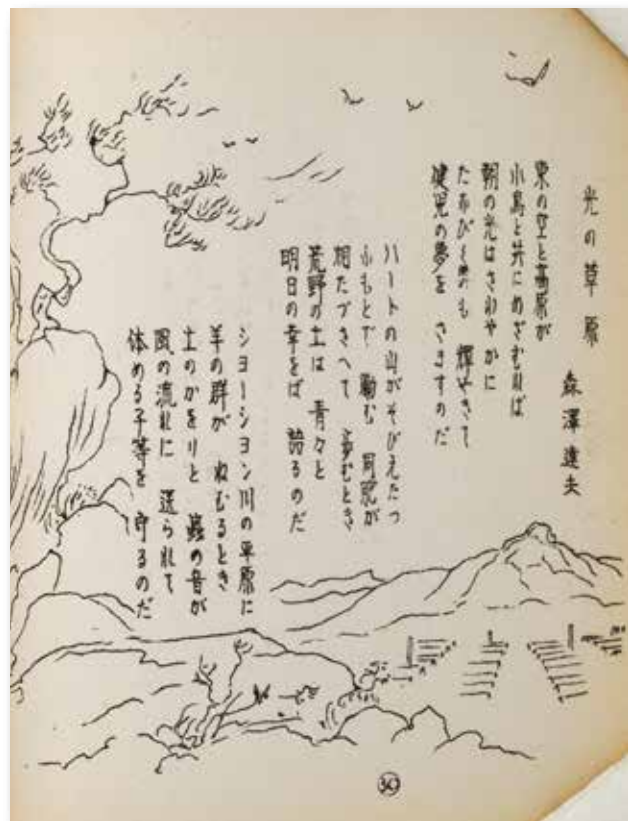 光の草原
森澤達夫
東の空と高原が
小鳥と共にめざむれば
朝の光はさわやかに
たなびく雲も 輝やきて
健児の夢を さますのだ
ハートの山がそびえたつ
ふもとで 勵む 同胞が
相たづさへて 歩むとき
荒野の土は 青々と
明日の幸をば 語るのだ
シヨーシヨン川の平原に
羊の群が ねむるとき
土のかをりと 蟲の音が
風の流れに 送られて
休める子等を 守るのだ
30